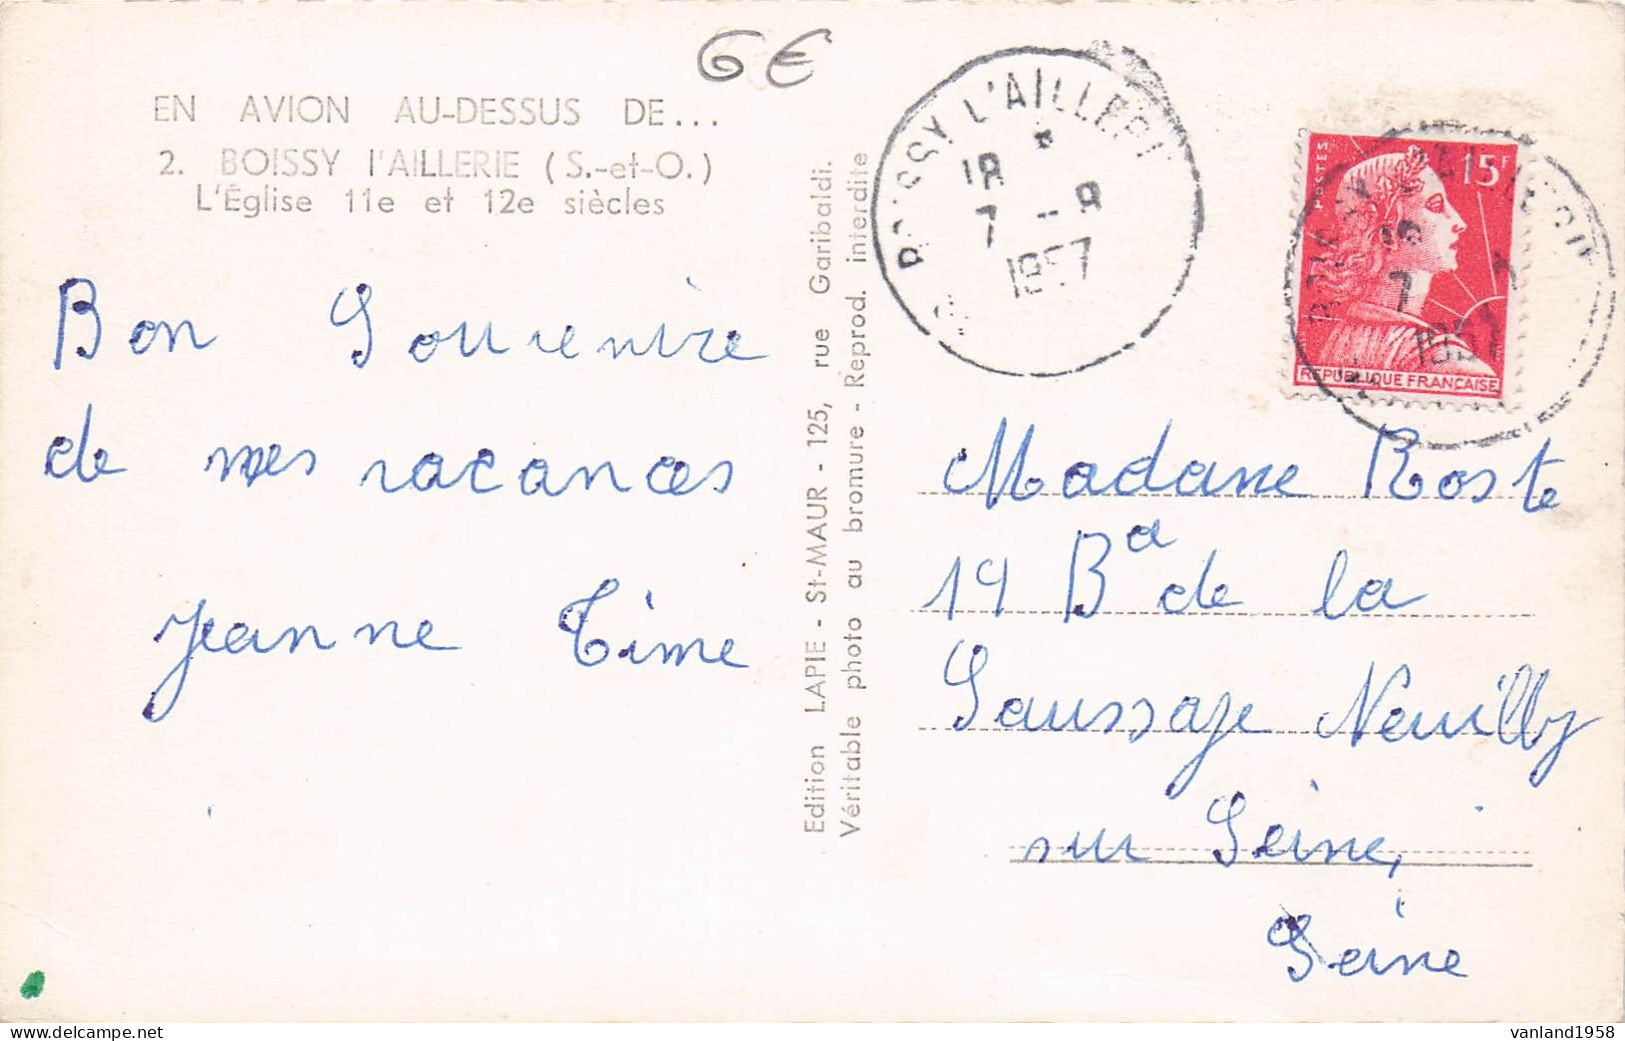 6€
EN AVION AU-DESSUS DE...
2. BOISSY l'AILLERIE (S.-et-O.)
L'Église 11e et 12e siècles
Bon Souvenire
de mes vacances
Jeanne Time
Edition LAPIE - St-MAUR - 125, rue Garibaldi.
Véritable photo au bromure - Reprod. interdite
BOISSY L'AILLERI
18
7 - 8
1957
POSTES
15F
REPUBLIQUE FRANÇAISE
18
7
1957
Madame Roste
19 Bd de la
Saussaje Neuilly
sur Seine,
Seine
vanland1958